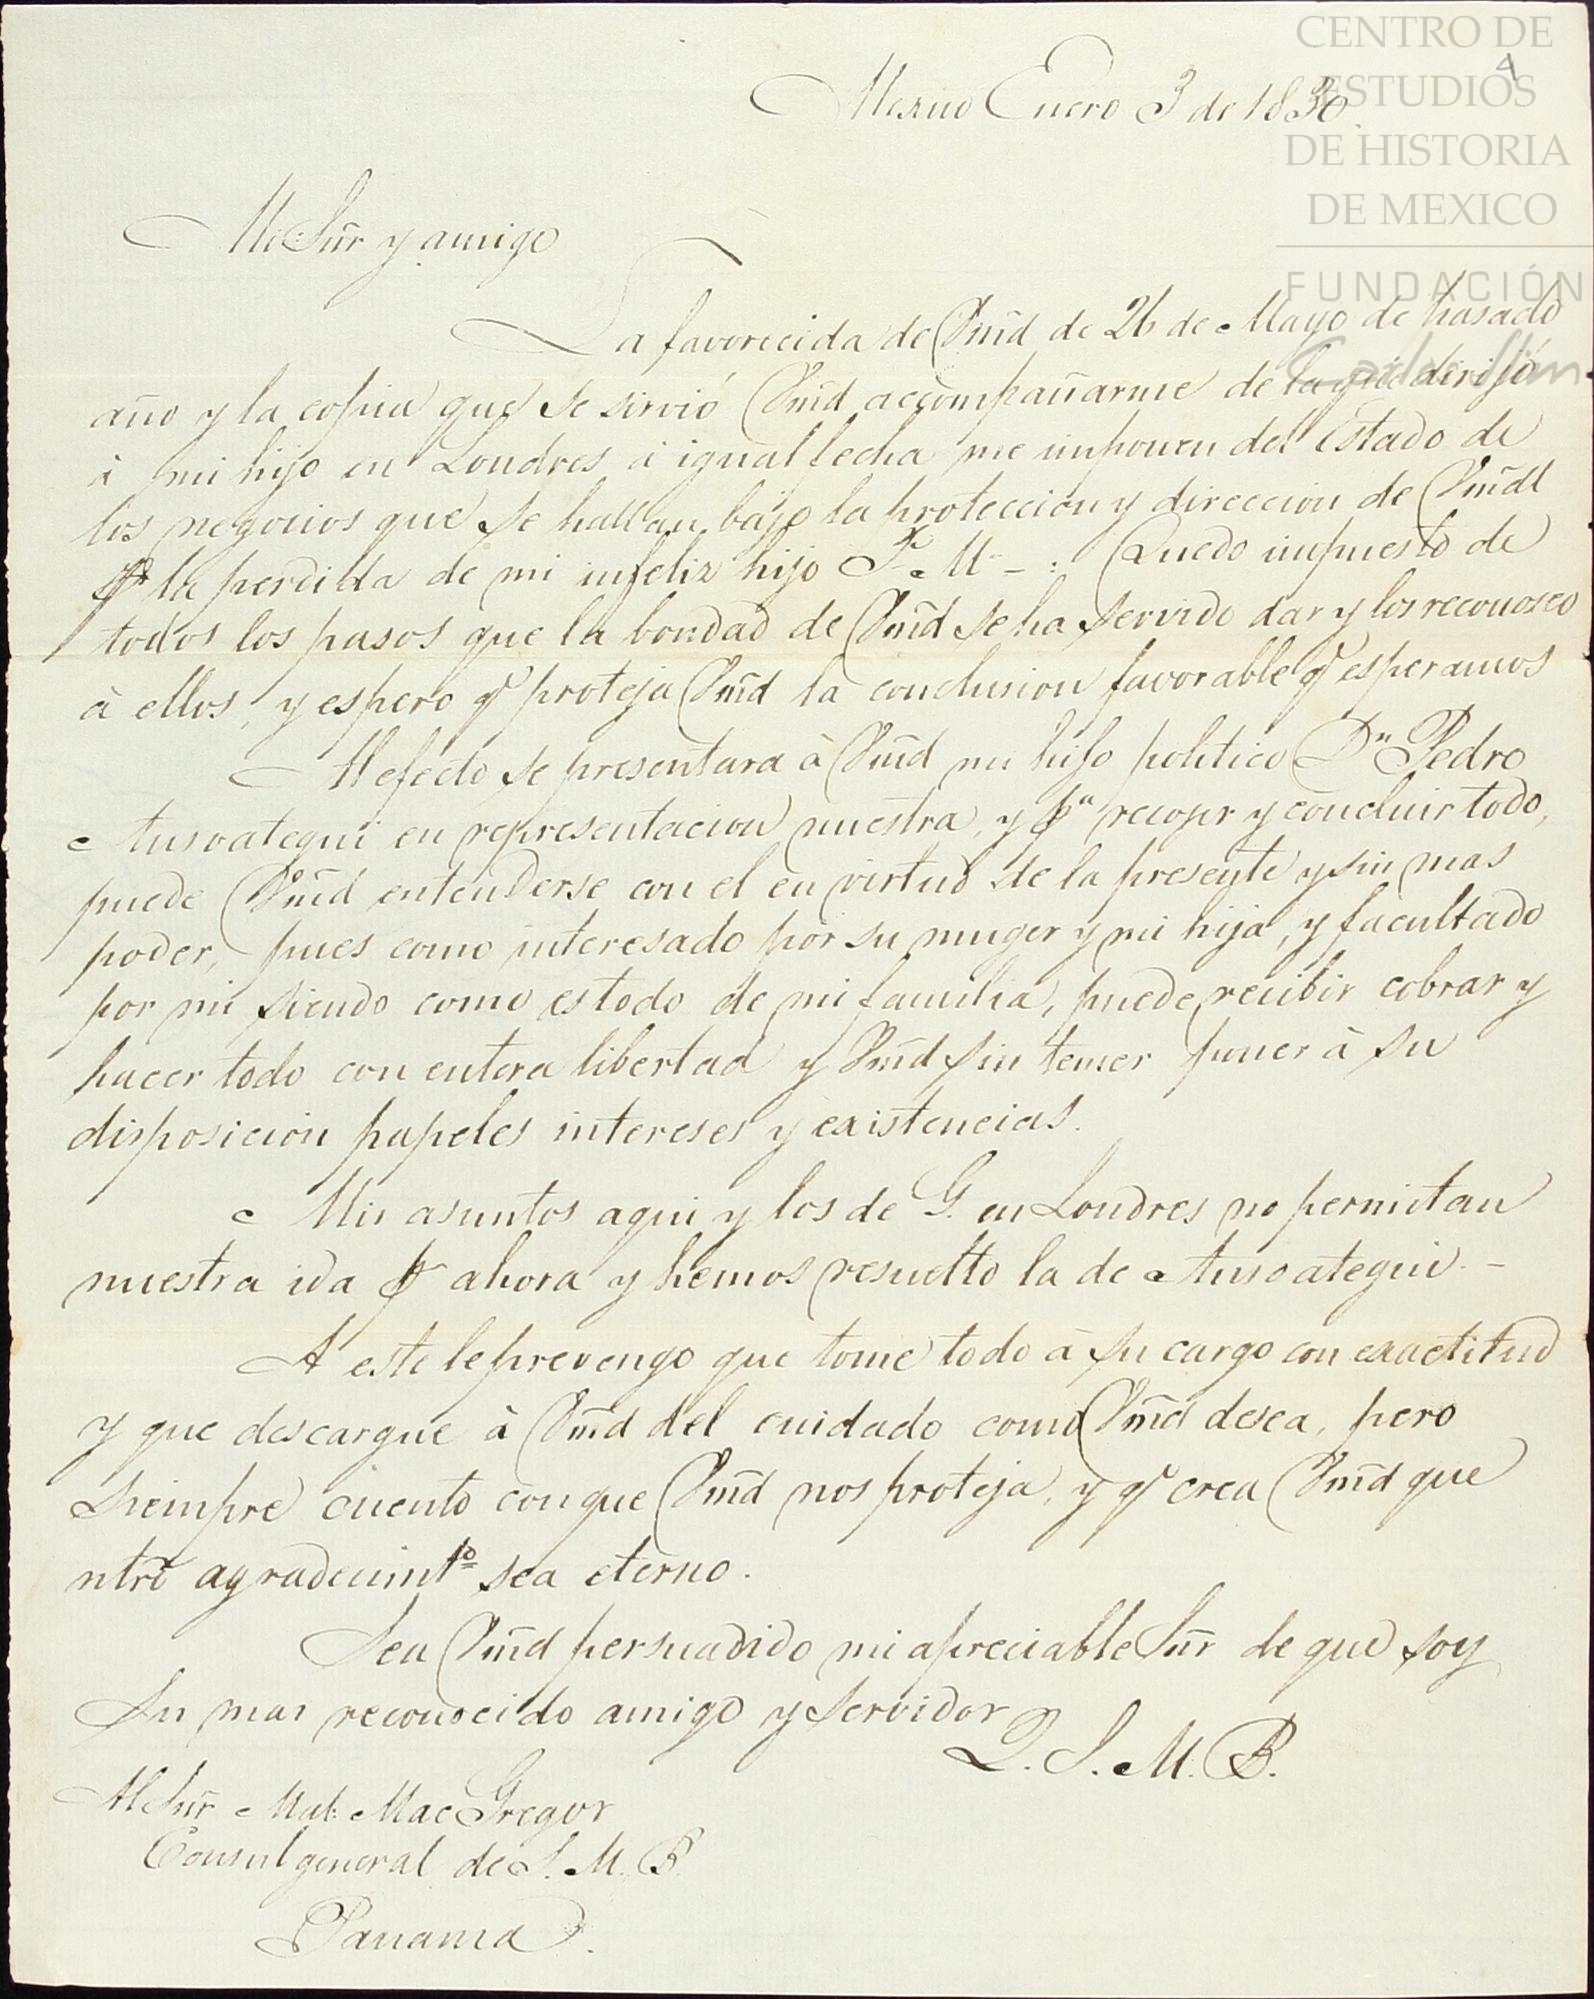 CENTRO DE
ESTUDIOS
DE HISTORIA
DE MEXICO
FUNDACIÓN
4
Mexico Enero 3 de 1830
Mi Sñr y amigo
La favorecida de Vmd de 26 de Mayo de pasado
año y la copia que se sirvió Vmd accompañarme de la que dirijó
à mi hijo en Londres à igual fecha me imponen del Estado de
los negocios que se hallan bajo la proteccion y direccion de Vmd
pr la perdida de mi infeliz hijo F. M. Quedo impuesto de
todos los pasos que la bondad de Vmd se ha servido dar y los reconosco
à ellos, y espero qe proteja Vmd la conclusion favorable qe esperamos
Al efecto se presentara à Vmd mi hijo politico Dn Pedro
Ansoategui en representacion nuestra, y pa recojer y concluir todo,
puede Vmd entenderse con el en virtud de la presente y sin mas
poder, pues como interesado por su muger y mi hija, y facultado
por mi siendo como es todo de mi familia, puede recibir cobrar y
hacer todo con entera libertad y Vmd sin temer poner à su
disposicion papeles intereses y existencias.
Mis asuntos aqui y los de G. en Londres no permitan
nuestra ida pr ahora y hemos resuelto la de Ansoategui. -
A este le prevengo que tome todo à su cargo con exactitud
y que descargue à Vmd del cuidado como Vmd desea, pero
siempre cuento con que Vmd nos proteja, y qe crea Vmd que
ntrō agradecimto sea eterno.
Sea Vmd persuadido mi apreciable Sñr de que soy
Su mas reconocido amigo y servidor
Q. S. M. B.
Al Sñr Mal: MacGregor
Consul general de S. M. B.
Panama.